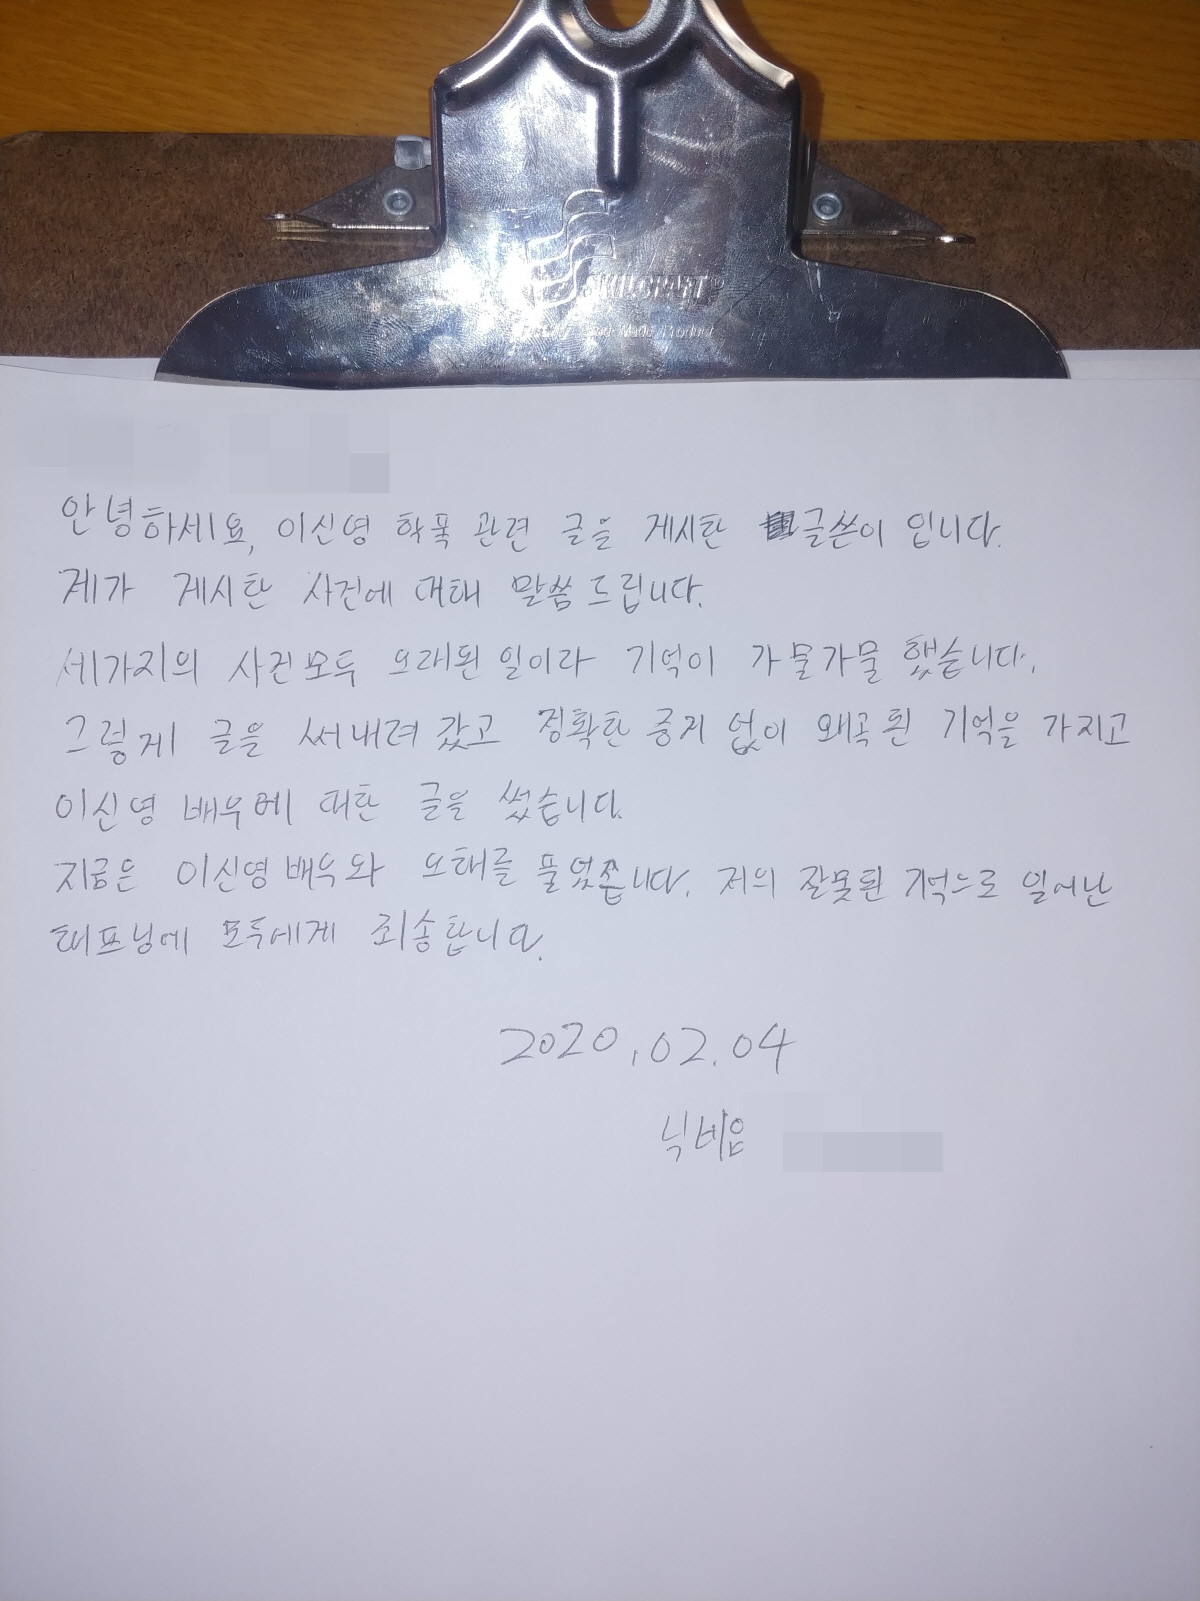 SKILCRAFT®
안녕하세요, 이신영 학폭 관련 글을 게시한 글쓴이 입니다.
제가 게시한 사건에 대해 말씀 드립니다.
세가지의 사건모두 오래된 일이라 기억이 가물가물 했습니다.
그렇게 글을 써내려 갔고 정확한 증거 없이 왜곡된 기억을 가지고
이신영 배우에 대한 글을 썼습니다.
지금은 이신영 배우와 오해를 풀었습니다. 저의 잘못된 기억으로 일어난
해프닝에 모두에게 죄송합니다.
2020.02.04
닉네임